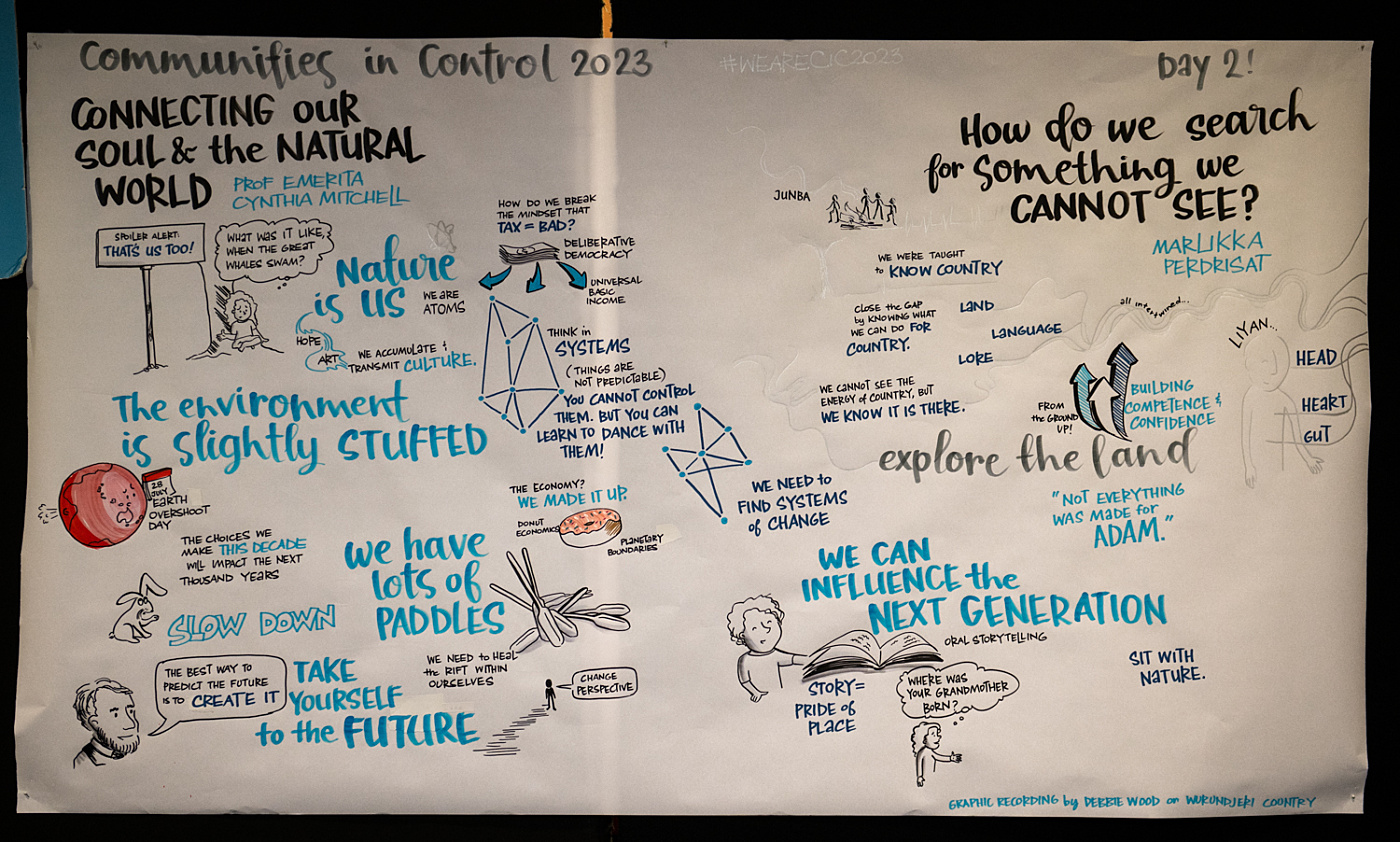 Communities in Control 2023
#WEARECIC2023
Day 2!
CONNECTING OUR
SOUL & the NATURAL
WORLD
PROF EMERITA
CYNTHIA MITCHELL
SPOILER ALERT:
THAT'S US TOO!
WHAT WAS IT LIKE,
WHEN THE GREAT
WHALES SWAM?
Nature
is US
WE ARE
ATOMS
HOPE
ART
WE ACCUMULATE &
TRANSMIT CULTURE.
HOW DO WE BREAK
THE MINDSET THAT
TAX = BAD?
DELIBERATIVE
DEMOCRACY
UNIVERSAL
BASIC
INCOME
THINK in
SYSTEMS
(THINGS ARE
NOT PREDICTABLE)
YOU CANNOT CONTROL
THEM. BUT YOU CAN
LEARN TO DANCE WITH
THEM!
The environment
is slightly STUFFED
28
JULY
EARTH
OVERSHOOT
DAY
THE CHOICES WE
MAKE THIS DECADE
WILL IMPACT THE NEXT
THOUSAND YEARS
SLOW DOWN
we have
lots of
PADDLES
THE ECONOMY?
WE MADE IT UP.
DONUT
ECONOMICS
PLANETARY
BOUNDARIES
WE NEED to
FIND SYSTEMS
of CHANGE
THE BEST WAY TO
PREDICT THE FUTURE
IS to CREATE IT
TAKE
YOURSELF
to the FUTURE
WE NEED to HEAL
the RIFT WITHIN
OURSELVES
CHANGE
PERSPECTIVE
How do we search
for something we
CANNOT SEE?
MARLIKKA
PERDRISAT
JUNBA
WE WERE TAUGHT
to KNOW COUNTRY
CLOSE the GAP
by KNOWING WHAT
WE CAN DO FOR
COUNTRY.
LAND
LANGUAGE
LORE
all intertwined...
WE CANNOT SEE THE
ENERGY of COUNTRY, BUT
WE KNOW IT IS THERE.
FROM
the GROUND
UP!
BUILDING
COMPETENCE &
CONFIDENCE
LIYAN...
HEAD
HEART
GUT
explore the land
"NOT EVERYTHING
WAS MADE for
ADAM."
WE CAN
INFLUENCE the
NEXT GENERATION
ORAL STORYTELLING
STORY =
PRIDE of
PLACE
WHERE WAS
YOUR GRANDMOTHER
BORN?
SIT WITH
NATURE.
GRAPHIC RECORDING by DEBBIE WOOD on WURUNDJERI COUNTRY